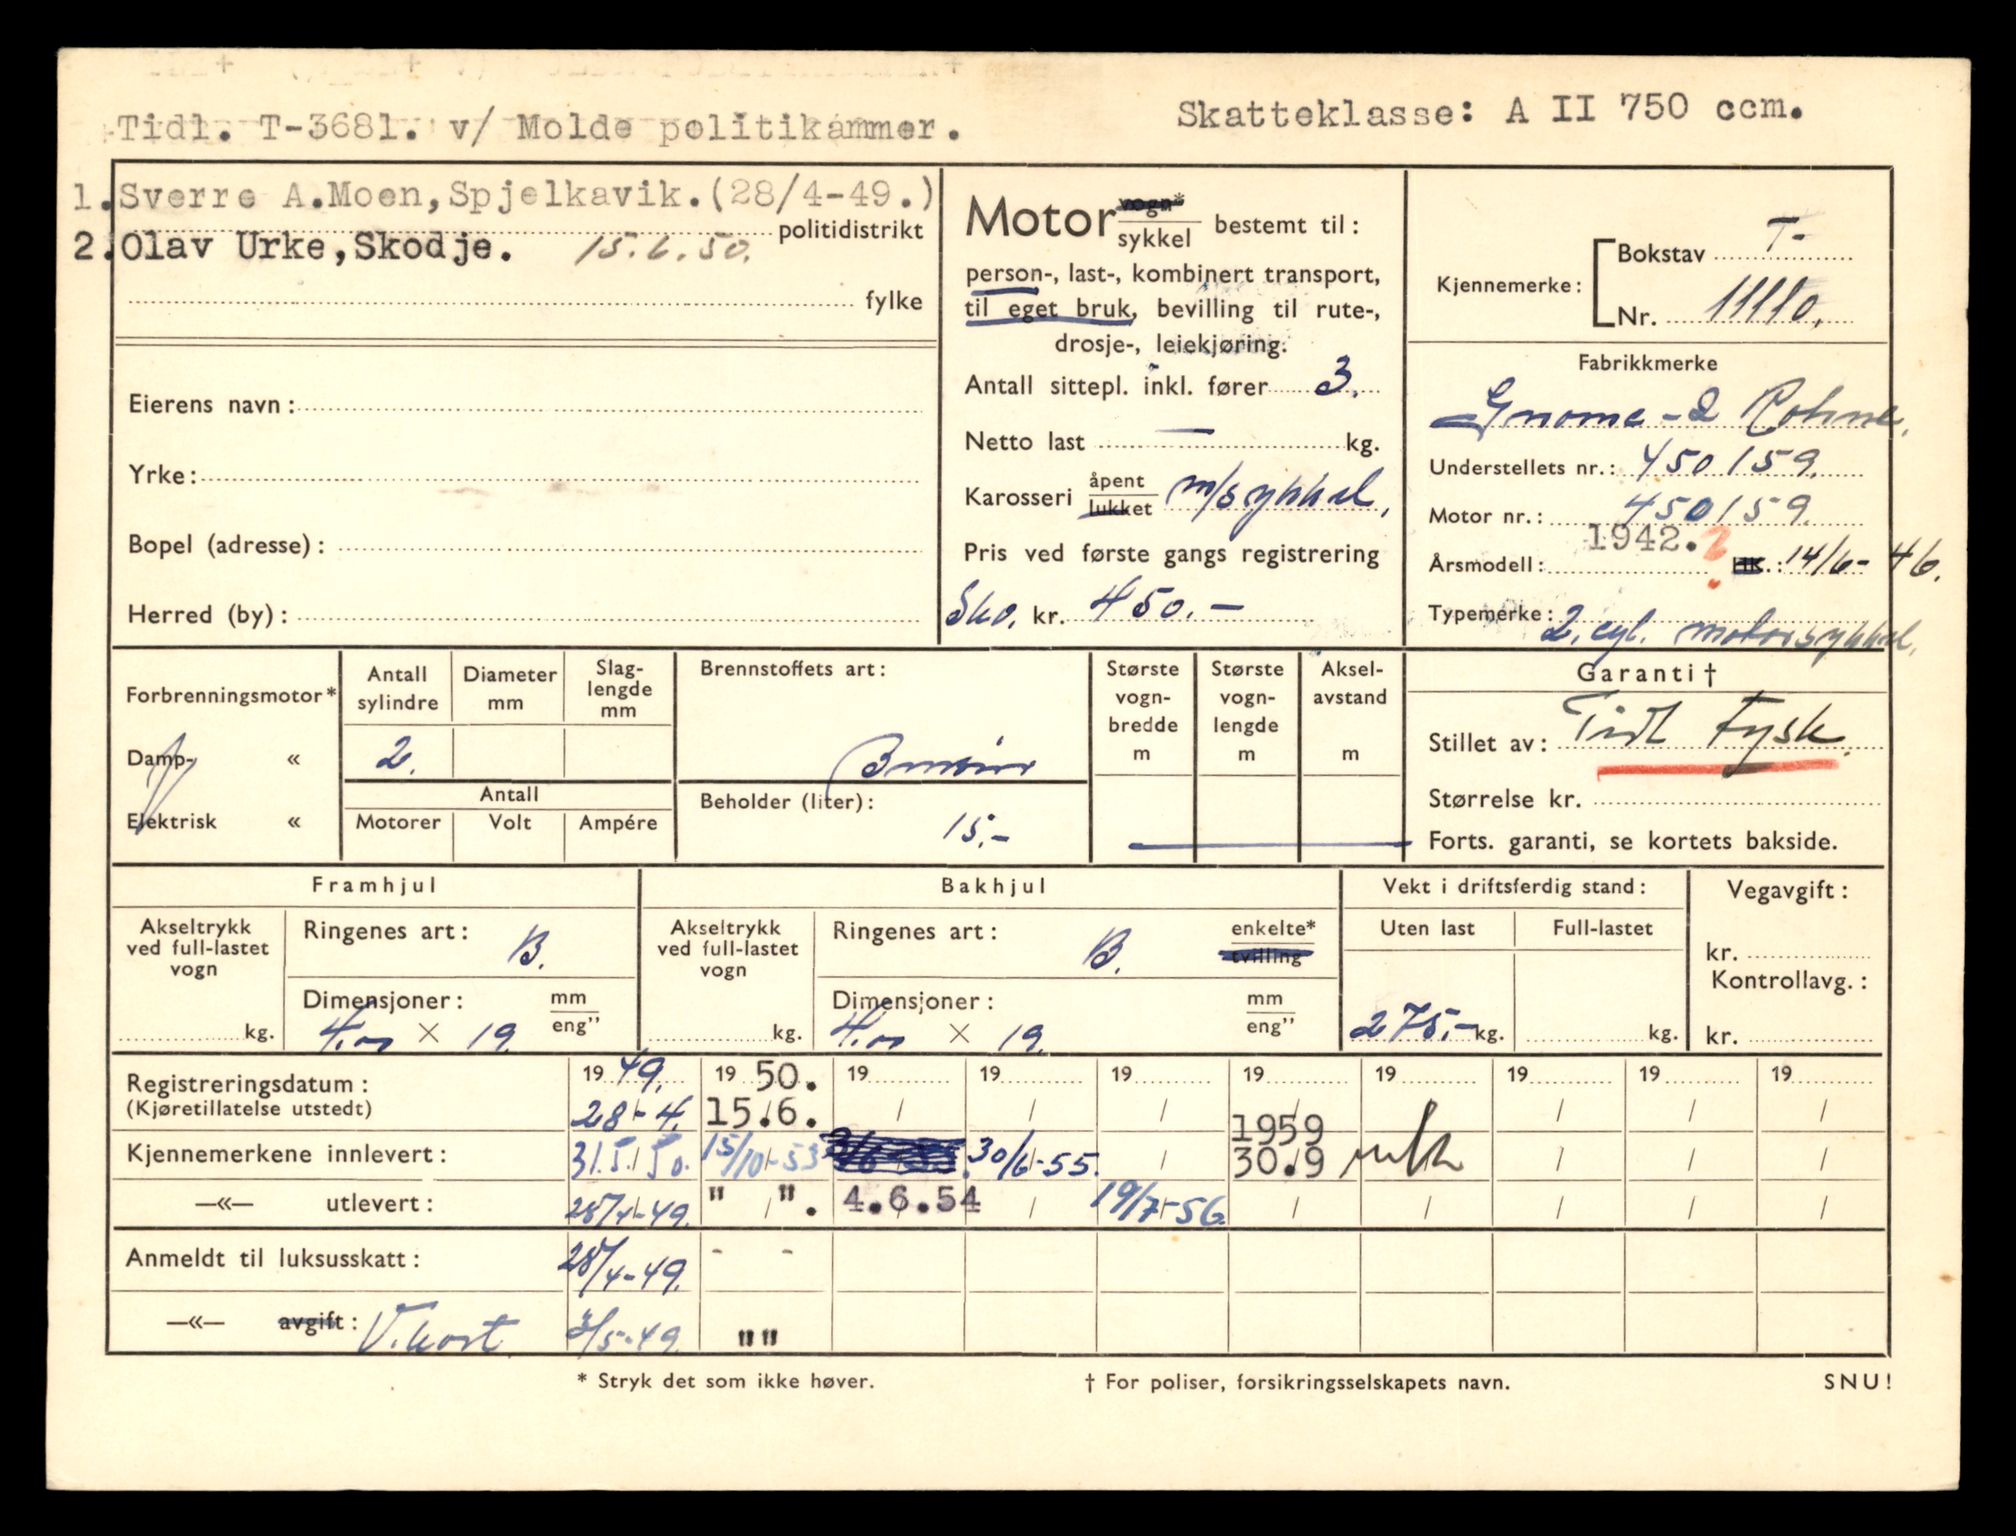 Tidl. T-3681. v/ Molde politikammer.
Skatteklasse: A II 750 ccm.
1. Sverre A.Moen,Spjelkavik.(28/4-49.)
politidistrikt
2. Olav Urke,Skodje. 15.6.50.
fylke
Eierens navn:
Yrke:
Bopel (adresse):
Herred (by):
Motor vogn* / sykkel bestemt til:
person-, last-, kombinert transport,
til eget bruk, bevilling til rute-,
drosje-, leiekjøring.
Antall sittepl. inkl. fører 3.
Netto last — kg.
Karosseri åpent / lukket m/sykkel,
Pris ved første gangs registrering
Sko. kr. 450.-
Kjennemerke: Bokstav T-
Nr. 11110.
Fabrikkmerke
Gnome-2 Rohne.
Understellets nr.: 450159.
Motor nr.: 450159.
Årsmodell: 1942. ? HK.: 14/6-46.
Typemerke: 2. cyl. motorsykkel.
Forbrenningsmotor*
Damp- «
Elektrisk «
Antall sylindre
2.
Diameter mm
Slag-lengde mm
Antall
Motorer Volt Ampére
Brennstoffets art:
Bensin
Beholder (liter):
15.-
Største vogn-bredde m
Største vogn-lengde m
Aksel-avstand m
Garanti †
Stillet av: Tidl Fysk.
Størrelse kr.
Forts. garanti, se kortets bakside.
Framhjul
Akseltrykk ved full-lastet vogn
kg.
Ringenes art: B.
Dimensjoner: mm / eng”
4.00 × 19.
Bakhjul
Akseltrykk ved full-lastet vogn
kg.
Ringenes art: B. enkelte* / tvilling
Dimensjoner: mm / eng”
4.00 × 19.
Vekt i driftsferdig stand:
Uten last Full-lastet
275.- kg. kg.
Vegavgift:
kr.
Kontrollavg.:
kr.
Registreringsdatum: 19 49. 19 50. 19 19 19 19 19 19 19 19
(Kjøretillatelse utstedt) 28-4. 15.6.
Kjennemerkene innlevert: 31.5.50. 15/10-53 30/6-55. 1959 30.9
—«— utlevert: 28/4-49. " ". 4.6.54 19/7-56.
Anmeldt til luksusskatt: 28/4-49. - -
—«— avgift: V.kort 3/5-49. ""
* Stryk det som ikke høver.
† For poliser, forsikringsselskapets navn.
SNU!